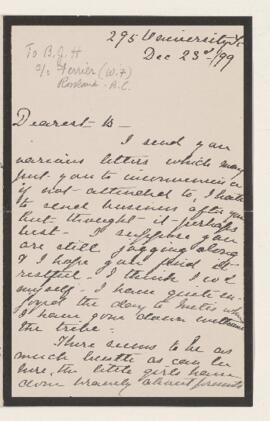 295 University St
Dec 23rd/99
To B.J.H
c/o Ferrier (W.F)
Rossland - B.C.
Dearest B -
I send you
various letters which may
put you to inconvenience
if not attended to, I hate
to send business after you
but thought it perhaps
best - I suppose you
are still jogging along
& I hope you find it
restful - I think I wd
myself - I have quite en-
joyed the day or two
I have gone down without
the tribe.
There seems to be as
much bustle as can be
here, the little girls have
done bravely about presents